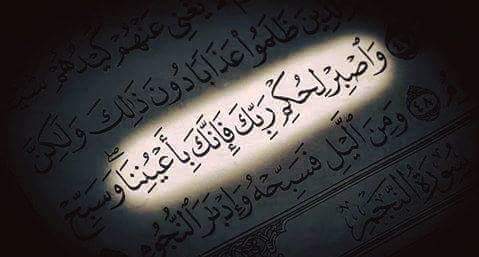 يُغْنِي عَنْهُمْ كَيْدُهُمْ
ظَلَمُوا۟ عَذَابًا دُونَ ذَٰلِكَ وَلَٰكِنَّ
وَٱصْبِرْ لِحُكْمِ رَبِّكَ فَإِنَّكَ بِأَعْيُنِنَا ۖ وَسَبِّحْ
٤٨ وَمِنَ ٱلَّيْلِ فَسَبِّحْهُ وَإِدْبَٰرَ ٱلنُّجُومِ
سُورَةُ النَّجْمِ